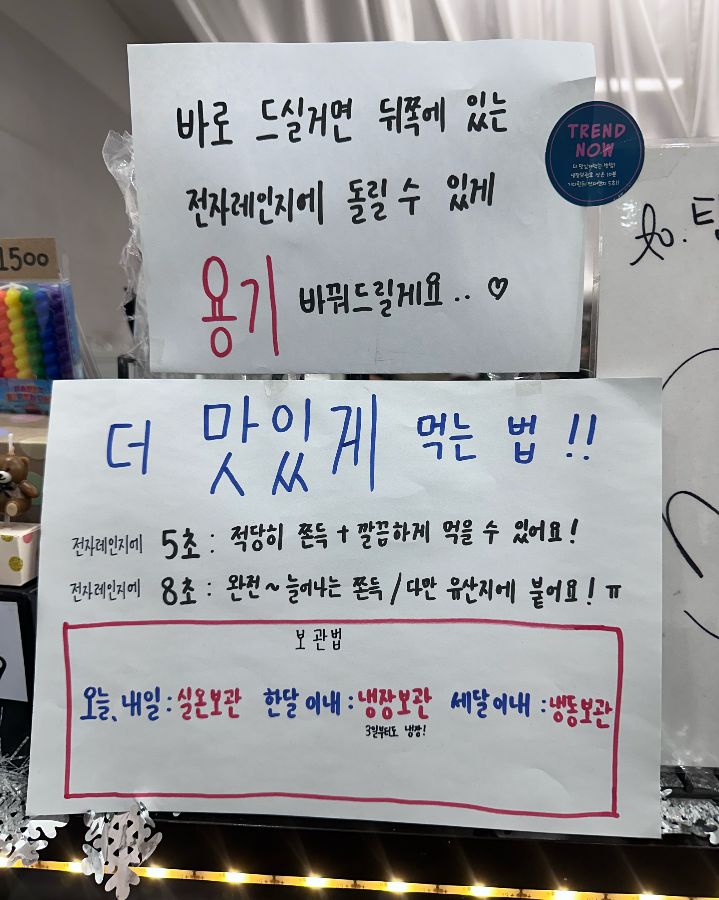 바로 드실거면 뒤쪽에 있는
전자레인지에 돌릴 수 있게
용기 바꿔드릴게요.. ♡
TREND
NOW
1500
to. 팀
더 맛있게 먹는 법 !!
전자레인지에 5초 : 적당히 쫀득 + 깔끔하게 먹을 수 있어요!
전자레인지에 8초 : 완전~ 늘어나는 쫀득 / 다만 유산지에 붙어요! ㅠ
보관법
오늘, 내일 : 실온보관 한달 이내 : 냉장보관 세달이내 : 냉동보관
3일부터도 냉장!